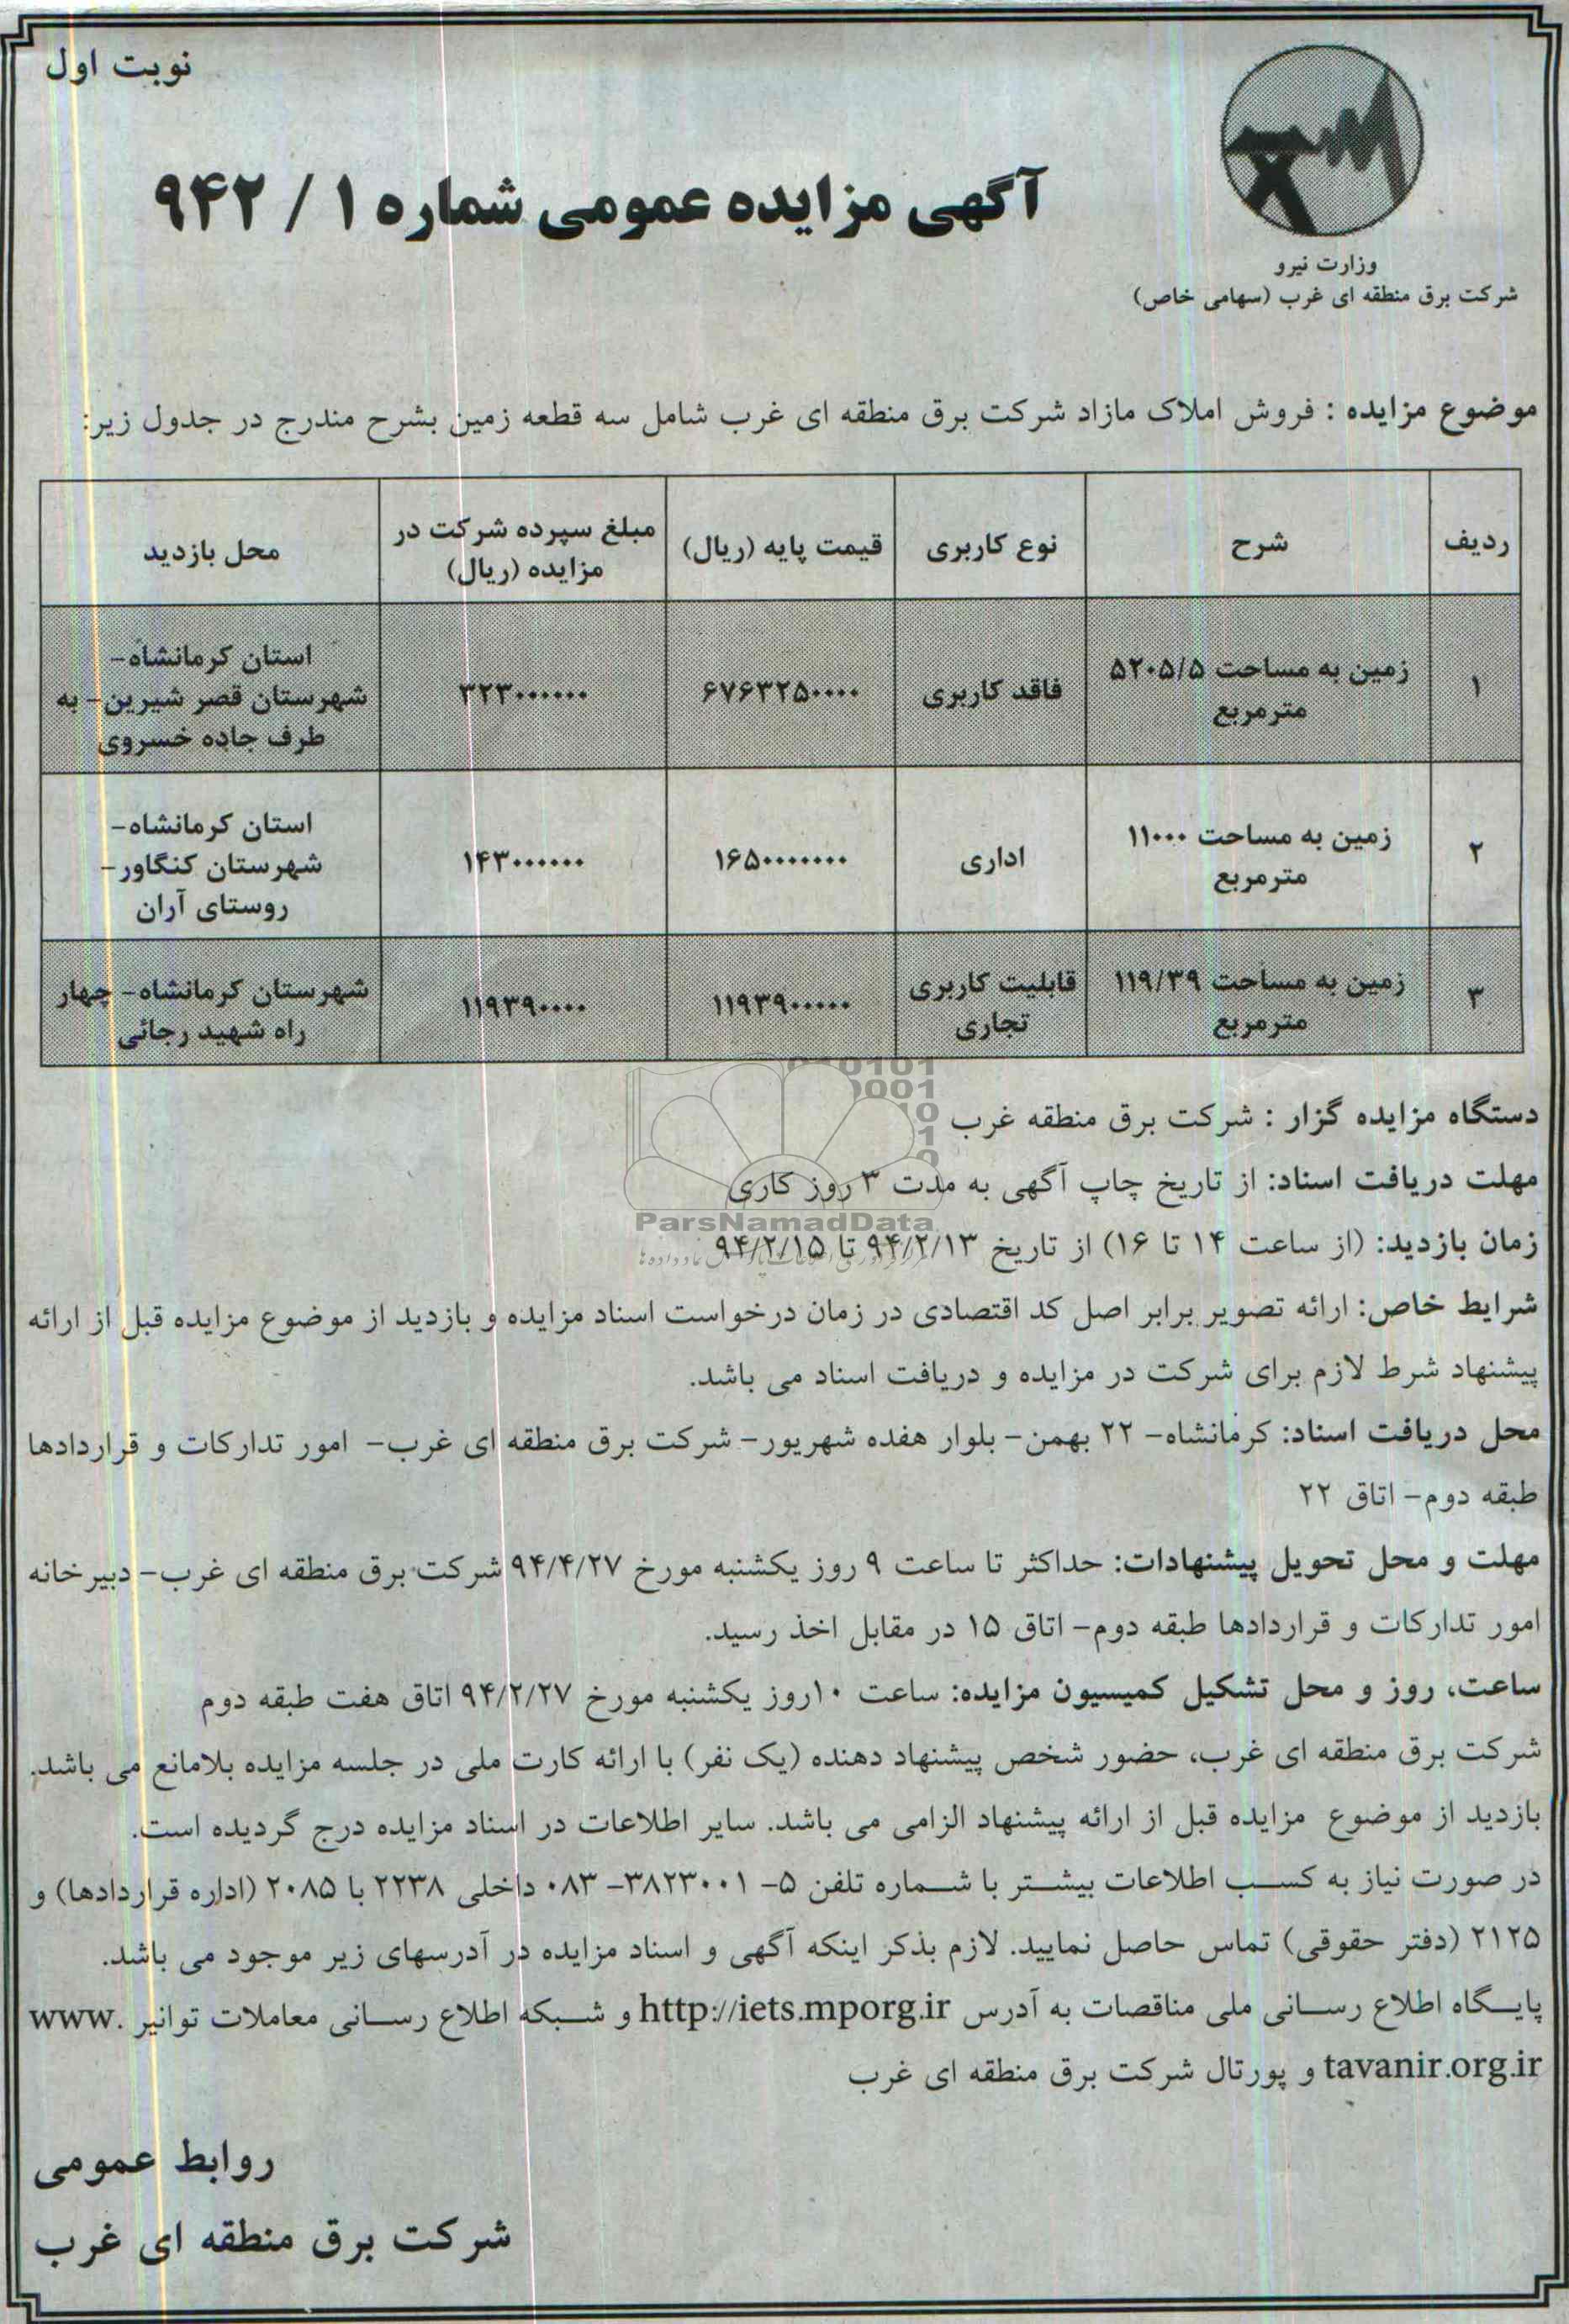 نوبت اول
آگهی مزایده عمومی شماره ۱ / ۹۴۲
وزارت نیرو
شرکت برق منطقه ای غرب (سهامی خاص)
موضوع مزایده : فروش املاک مازاد شرکت برق منطقه ای غرب شامل سه قطعه زمین بشرح مندرج در جدول زیر:
ردیف شرح نوع کاربری قیمت پایه (ریال) مبلغ سپرده شرکت در مزایده (ریال) محل بازدید
۱ زمین به مساحت ۵۲۰۵/۵ مترمربع فاقد کاربری ۶۷۶۳۲۵۰۰۰۰ ۳۲۳۰۰۰۰۰۰ استان کرمانشاه- شهرستان قصر شیرین- به طرف جاده خسروی
۲ زمین به مساحت ۱۱۰۰۰ مترمربع اداری ۱۶۵۰۰۰۰۰۰۰ ۱۴۳۰۰۰۰۰۰ استان کرمانشاه- شهرستان کنگاور- روستای آران
۳ زمین به مساحت ۱۱۹/۳۹ مترمربع قابلیت کاربری تجاری ۱۱۹۳۹۰۰۰۰۰ ۱۱۹۳۹۰۰۰۰ شهرستان کرمانشاه- چهار راه شهید رجائی
دستگاه مزایده گزار : شرکت برق منطقه غرب
مهلت دریافت اسناد: از تاریخ چاپ آگهی به مدت ۳ روز کاری
ParsNamadData
زمان بازدید: (از ساعت ۱۴ تا ۱۶) از تاریخ ۹۴/۲/۱۳ تا ۹۴/۲/۱۵
شرایط خاص: ارائه تصویر برابر اصل کد اقتصادی در زمان درخواست اسناد مزایده و بازدید از موضوع مزایده قبل از ارائه
پیشنهاد شرط لازم برای شرکت در مزایده و دریافت اسناد می باشد.
محل دریافت اسناد: کرمانشاه- ۲۲ بهمن- بلوار هفده شهریور- شرکت برق منطقه ای غرب- امور تدارکات و قراردادها
طبقه دوم- اتاق ۲۲
مهلت و محل تحویل پیشنهادات: حداکثر تا ساعت ۹ روز یکشنبه مورخ ۹۴/۴/۲۷ شرکت برق منطقه ای غرب- دبیرخانه
امور تدارکات و قراردادها طبقه دوم- اتاق ۱۵ در مقابل اخذ رسید.
ساعت، روز و محل تشکیل کمیسیون مزایده: ساعت ۱۰روز یکشنبه مورخ ۹۴/۲/۲۷ اتاق هفت طبقه دوم
شرکت برق منطقه ای غرب، حضور شخص پیشنهاد دهنده (یک نفر) با ارائه کارت ملی در جلسه مزایده بلامانع می باشد.
بازدید از موضوع مزایده قبل از ارائه پیشنهاد الزامی می باشد. سایر اطلاعات در اسناد مزایده درج گردیده است.
در صورت نیاز به کسب اطلاعات بیشتر با شماره تلفن ۵- ۳۸۲۳۰۰۱- ۰۸۳ داخلی ۲۲۳۸ با ۲۰۸۵ (اداره قراردادها) و
۲۱۲۵ (دفتر حقوقی) تماس حاصل نمایید. لازم بذکر اینکه آگهی و اسناد مزایده در آدرسهای زیر موجود می باشد.
پایگاه اطلاع رسانی ملی مناقصات به آدرس http://iets.mporg.ir و شبکه اطلاع رسانی معاملات توانیر www.
tavanir.org.ir و پورتال شرکت برق منطقه ای غرب
روابط عمومی
شرکت برق منطقه ای غرب